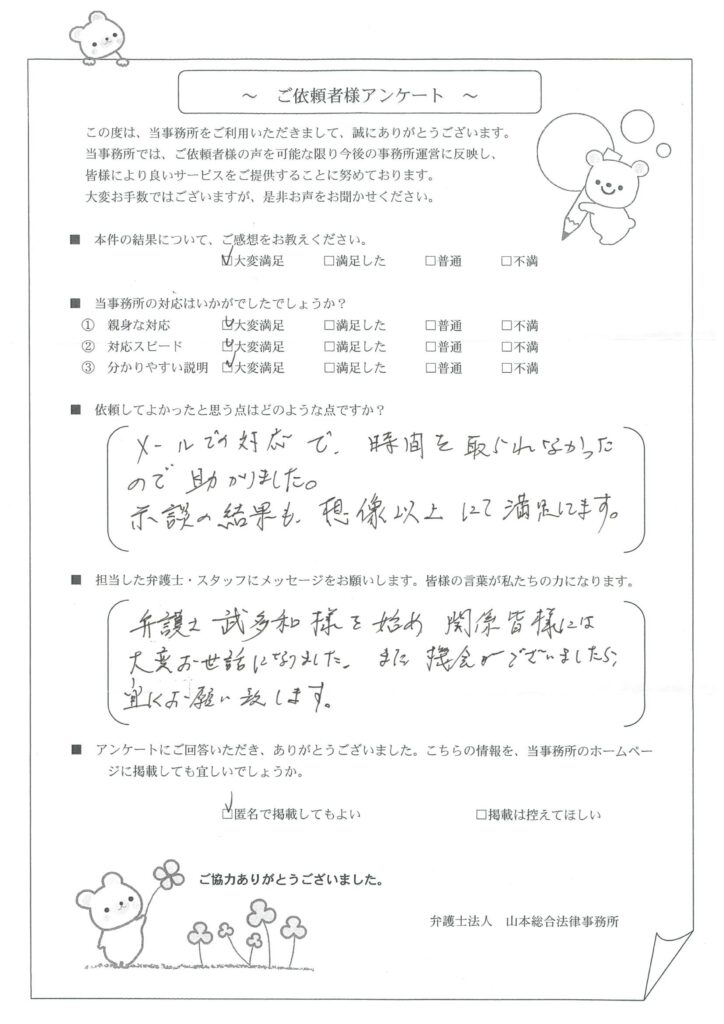 ～　ご依頼者様アンケート　～
この度は、当事務所をご利用いただきまして、誠にありがとうございます。
当事務所では、ご依頼者様の声を可能な限り今後の事務所運営に反映し、
皆様により良いサービスをご提供することに努めております。
大変お手数ではございますが、是非お声をお聞かせください。
■　本件の結果について、ご感想をお教えください。
☑大変満足　□満足した　□普通　□不満
■　当事務所の対応はいかがでしたでしょうか？
①　親身な対応　☑大変満足　□満足した　□普通　□不満
②　対応スピード　☑大変満足　□満足した　□普通　□不満
③　分かりやすい説明　☑大変満足　□満足した　□普通　□不満
■　依頼してよかったと思う点はどのような点ですか？
メールでの対応で、時間を取られなかった
ので助かりました。
示談の結果も、想像以上にて満足してます。
■　担当した弁護士・スタッフにメッセージをお願いします。皆様の言葉が私たちの力になります。
弁護士 武多和様を始め 関係皆様には
大変お世話になりました。また機会がございましたら、
宜しくお願い致します。
■　アンケートにご回答いただき、ありがとうございました。こちらの情報を、当事務所のホームペー
ジに掲載しても宜しいでしょうか。
☑匿名で掲載してもよい　□掲載は控えてほしい
ご協力ありがとうございました。
弁護士法人　山本総合法律事務所